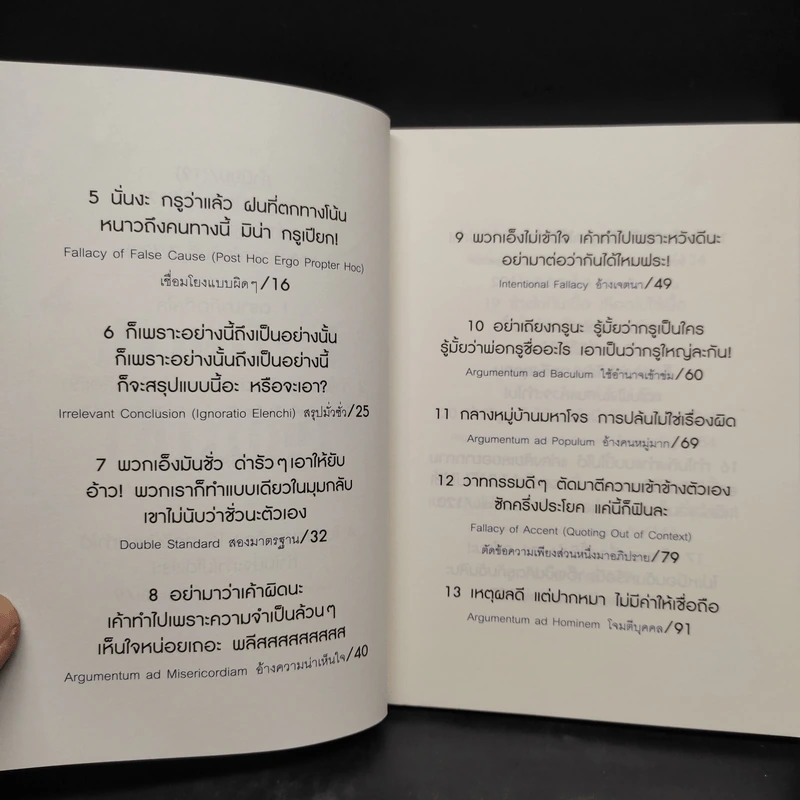 5 นั่นงะ กรูว่าแล้ว ฝนที่ตกทางโน้น
หนาวถึงคนทางนี้ มิน่า กรูเปียก!
Fallacy of False Cause (Post Hoc Ergo Propter Hoc)
เชื่อมโยงแบบผิดๆ/16
6 ก็เพราะอย่างนี้ถึงเป็นอย่างนั้น
ก็เพราะอย่างนั้นถึงเป็นอย่างนี้
ก็จะสรุปแบบนี้อะ หรือจะเอา?
Irrelevant Conclusion (Ignoratio Elenchi) สรุปมั่วซั่ว/25
7 พวกเอ็งมันชั่ว ด่ารัวๆเอาให้ยับ
อ้าว! พวกเราก็ทำแบบเดียวในมุมกลับ
เขาไม่นับว่าชั่วนะตัวเอง
Double Standard สองมาตรฐาน/32
8 อย่ามาว่าเค้าผิดนะ
เค้าทำไปเพราะความจำเป็นล้วนๆ
เห็นใจหน่อยเถอะ พลีสสสสสสสสสส
Argumentum ad Misericordiam อ้างความน่าเห็นใจ/40
9 พวกเอ็งไม่เข้าใจ เค้าทำไปเพราะหวังดีนะ
อย่ามาต่อว่ากันได้ไหมฟระ!
Intentional Fallacy อ้างเจตนา/49
10 อย่าเถียงกรูนะ รู้มั้ยว่ากรูเป็นใคร
รู้มั้ยว่าพ่อกรูชื่ออะไร เอาเป็นว่ากรูใหญ่ละกัน!
Argumentum ad Baculum ใช้อำนาจเข้าข่ม/60
11 กลางหมู่บ้านมหาโจร การปล้นไม่ใช่เรื่องผิด
Argumentum ad Populum อ้างคนหมู่มาก/69
12 วาทกรรมดีๆ ตัดมาตีความเข้าข้างตัวเอง
ซักครึ่งประโยค แค่นี้ก็ฟินละ
Fallacy of Accent (Quoting Out of Context)
ตัดข้อความเพียงส่วนหนึ่งมาอภิปราย/79
13 เหตุผลดี แต่ปากหมา ไม่มีค่าให้เชื่อถือ
Argumentum ad Hominem โจมตีบุคคล/91